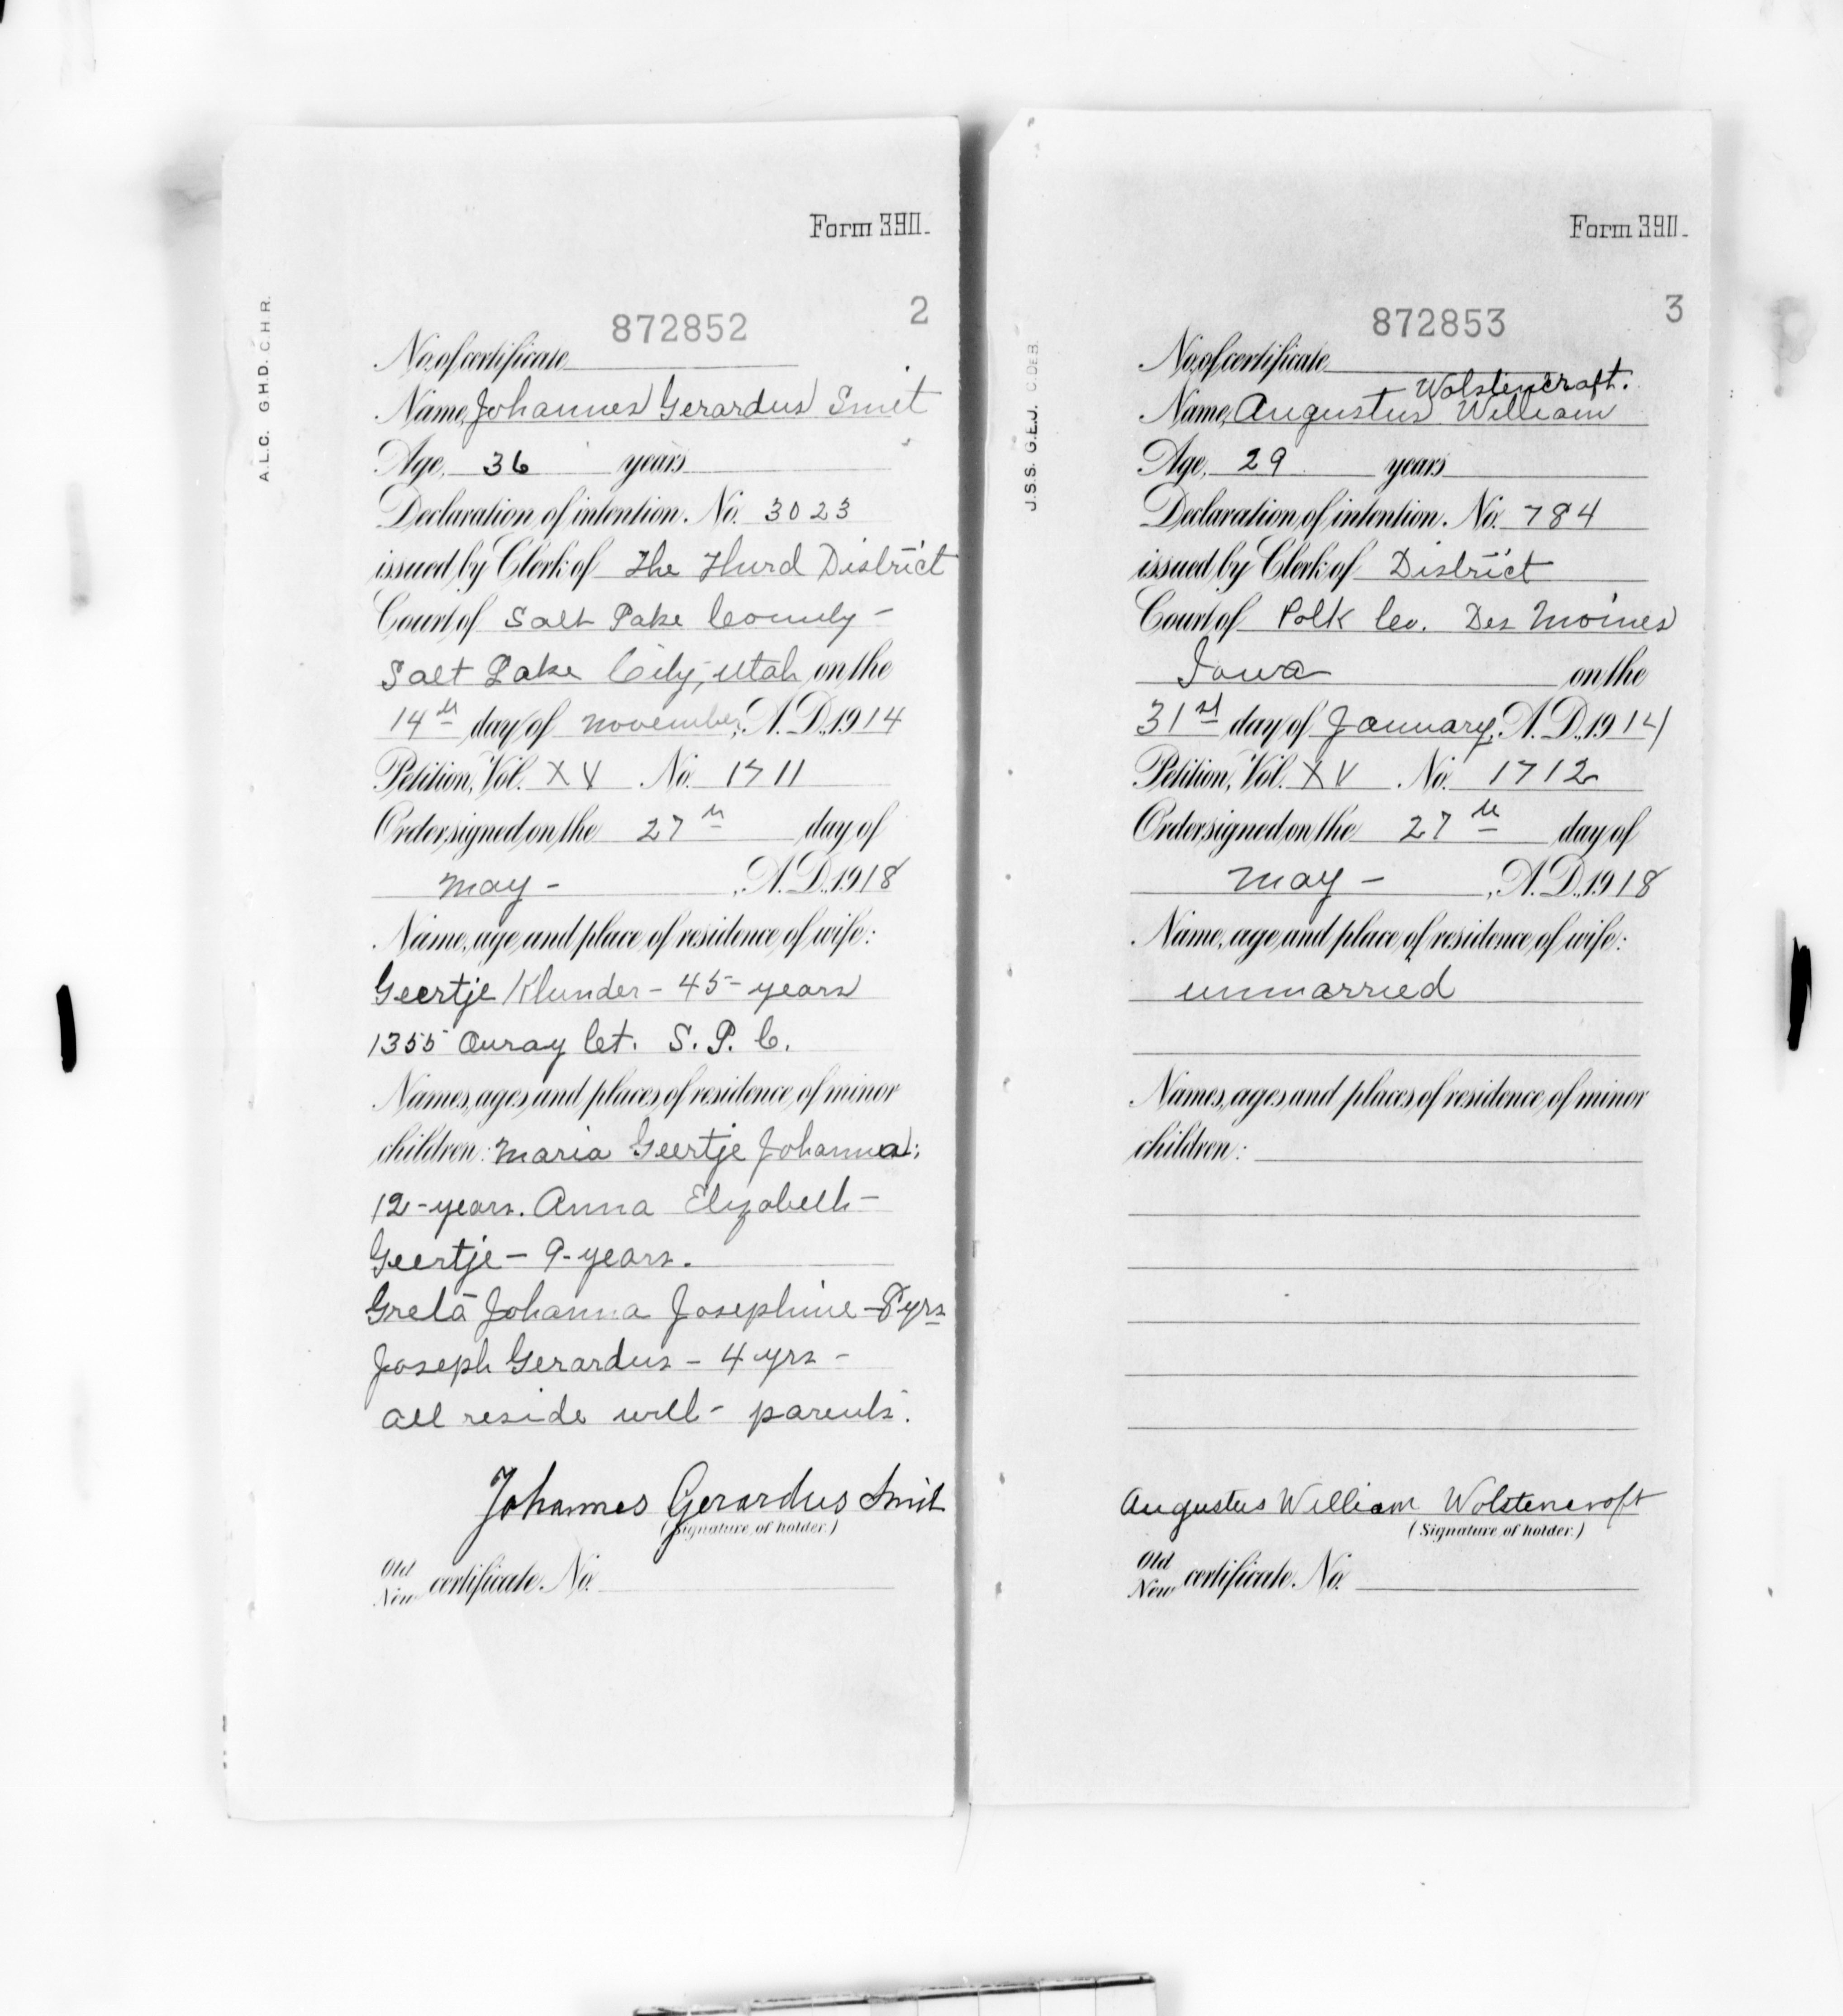 Form 390.
A.L.C. G.H.D. C.H.R.
2
872852
No. of certificate
Name, Johannes Gerardus Smit
Age, 36 years
Declaration of intention. No. 3023
issued by Clerk of The Third District
Court of Salt Lake County -
Salt Lake City, Utah on the
14th day of November, A.D. 1914
Petition, Vol. XV No. 1711
Order signed on the 27th day of
May - , A.D. 1918
Name, age and place of residence of wife:
Geertje Klunder - 45 - years
1355 Ouray Ct. S. L. C.
Names, ages and places of residence of minor
children: Maria Geertje Johanna;
12 - years. Anna Elizabeth -
Geertje - 9 - years.
Greta Johanna Josephine - 8 yrs
Joseph Gerardus - 4 yrs -
all reside with - parents.
Johannes Gerardus Smit
(Signature of holder.)
Old
New certificate No.
Form 390.
J.S.S. G.E.J. C.DEB.
3
872853
No. of certificate
Wolstencraft.
Name, Augustus William
Age, 29 years
Declaration of intention. No. 784
issued by Clerk of District
Court of Polk Co. Des Moines
Iowa on the
31st day of January, A.D. 1914
Petition, Vol. XV No. 1712
Order signed on the 27th day of
May - , A.D. 1918
Name, age and place of residence of wife:
unmarried
Names, ages and places of residence of minor
children:
Augustus William Wolstencroft
(Signature of holder.)
Old
New certificate No.